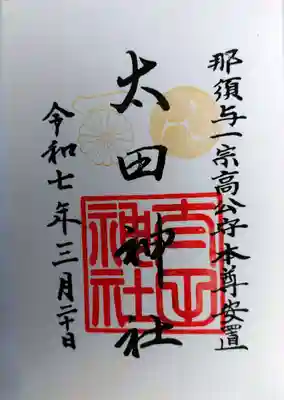 那須与一宗高公守本尊安置
太田神社
太田神社
令和七年三月二十日